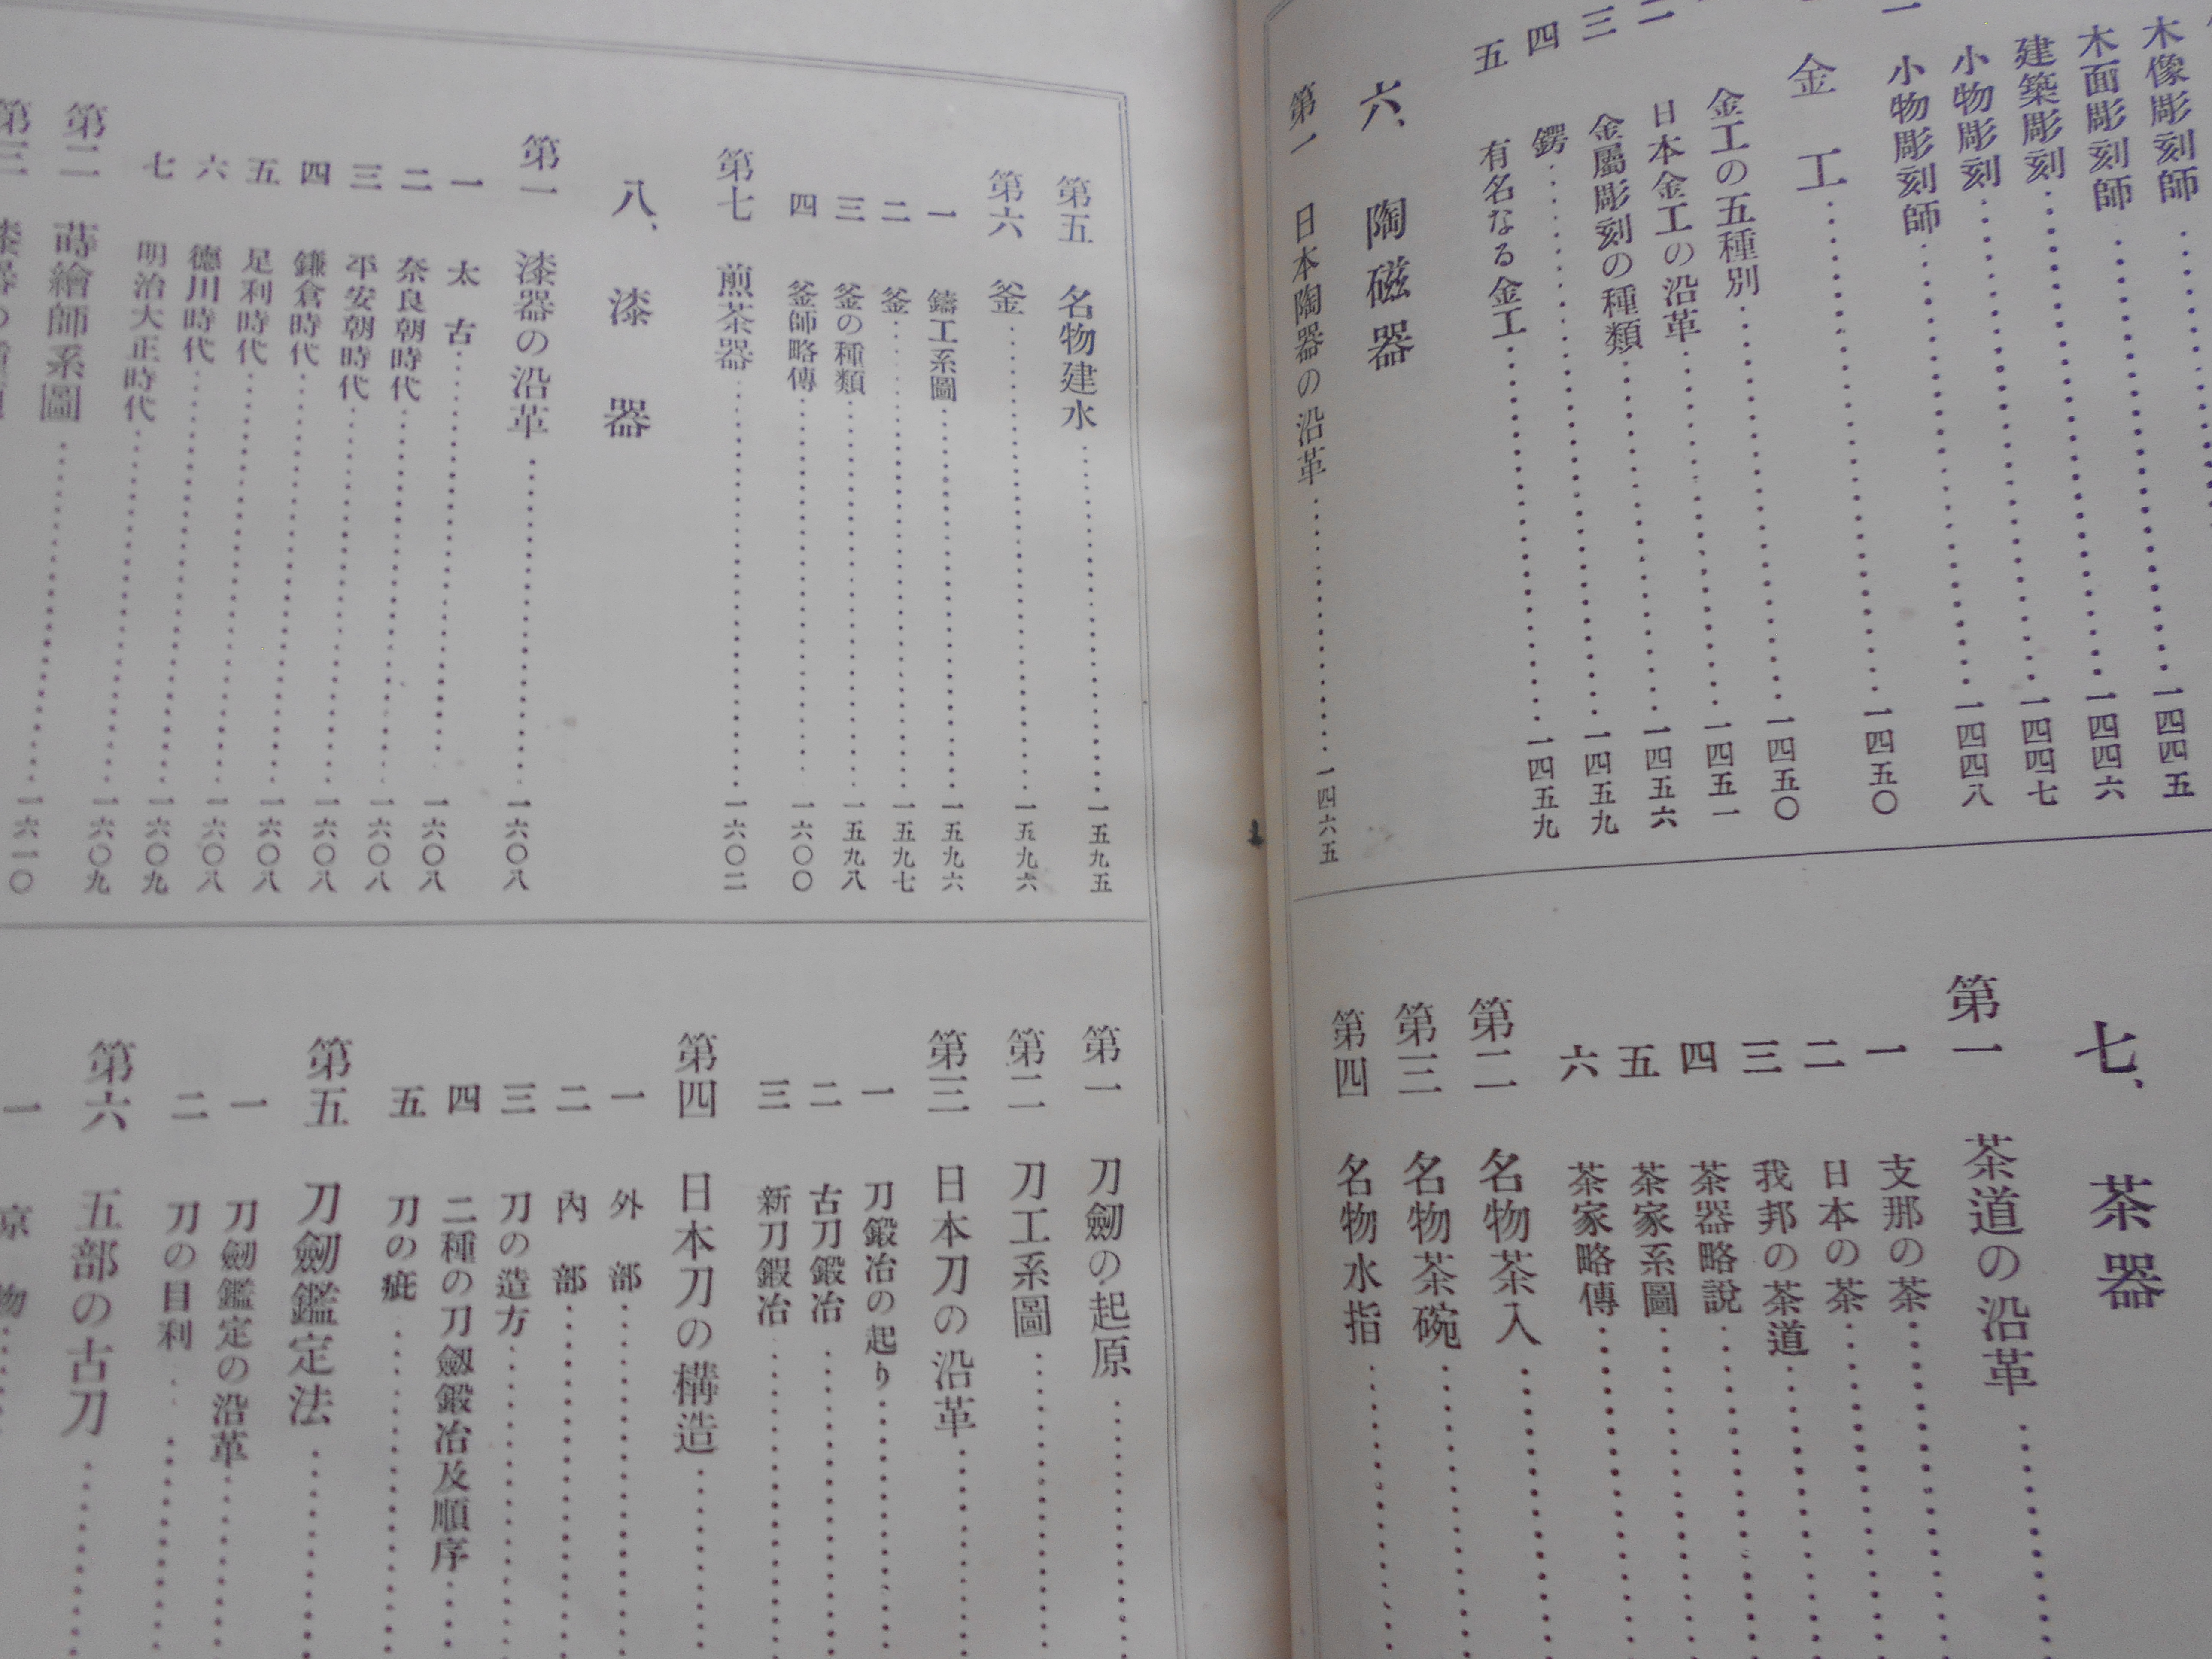 木像彫刻師 一四四五
木面彫刻師 一四四六
建築彫刻 一四四七
小物彫刻 一四四八
一 小物彫刻師 一四五〇
金工 一四五〇
金工の五種別 一四五一
二 日本金工の沿革 一四五六
三 金屬彫刻の種類 一四五九
四 鍔 一四五九
五 有名なる金工
六、陶磁器
第一 日本陶器の沿革 一四六五
七、茶器
第一 茶道の沿革
一 支那の茶
二 日本の茶
三 我邦の茶道
四 茶器略說
五 茶家系圖
六 茶家略傳
第二 名物茶入
第三 名物茶碗
第四 名物水指
第五 名物建水 一五九五
第六 釜 一五九六
一 鑄工系圖 一五九六
二 釜 一五九七
三 釜の種類 一五九八
四 釜師略傳 一六〇〇
第七 煎茶器 一六〇二
八、漆器
第一 漆器の沿革 一六〇八
一 太古 一六〇八
二 奈良朝時代 一六〇八
三 平安朝時代 一六〇八
四 鎌倉時代 一六〇八
五 足利時代 一六〇八
六 德川時代 一六〇九
七 明治大正時代 一六〇九
第二 蒔繪師系圖 一六一〇
第三
第一 刀劒の起原
第二 刀工系圖
第三 日本刀の沿革
一 刀鍛冶の起り
二 古刀鍛冶
三 新刀鍛冶
第四 日本刀の構造
一 外部
二 內部
三 刀の造方
四 二種の刀劒鍛冶及順序
五 刀の疵
第五 刀劒鑑定法
一 刀劒鑑定の沿革
二 刀の目利
第六 五部の古刀
一 京物